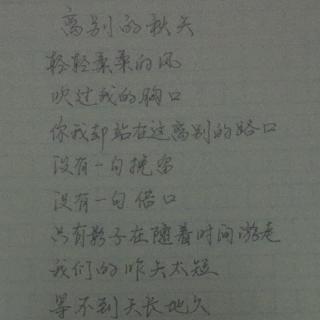 离别的秋天
轻轻柔柔的风
吹过我的胸口
你我却站在这离别的路口
没有一句挽留
没有一句借口
只有影子在随着时间游走
我们的昨天太短
等不到天长地久